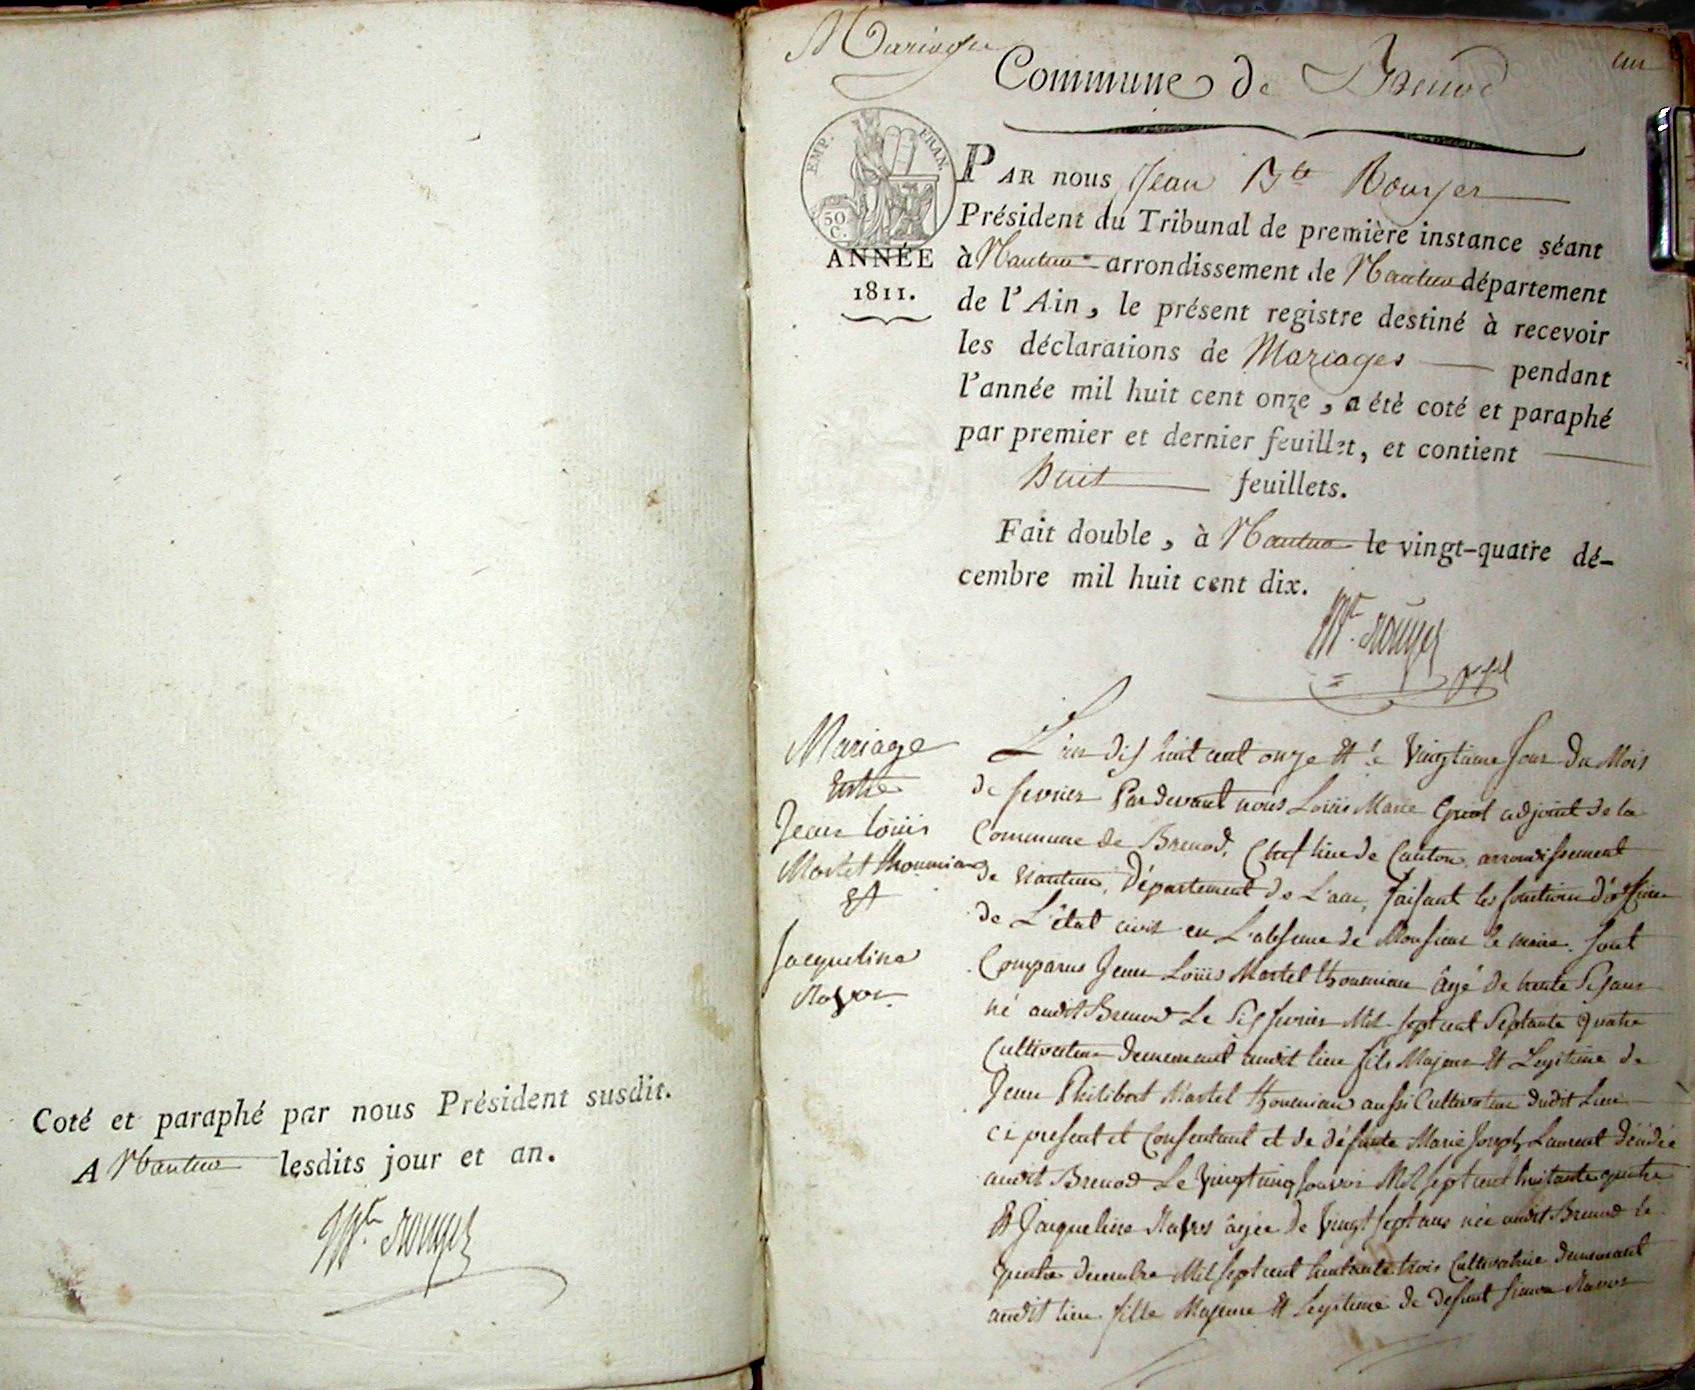 Coté et paraphé par nous Président susdit.
A Nantua lesdits jour et an.
Mariages
Commune de Brenod
EMP. FRAN.
50 C.
ANNÉE
1811.
PAR nous Jean Bte Rouyer
Président du Tribunal de première instance séant
à Nantua arrondissement de Nantua département
de l'Ain, le présent registre destiné à recevoir
les déclarations de Mariages pendant
l'année mil huit cent onze, a été coté et paraphé
par premier et dernier feuillet, et contient
huit feuillets.
Fait double, à Nantua le vingt-quatre dé-
cembre mil huit cent dix.
Mariage
Entre
Jean Louis
Martel thoumian
Et
Jacqueline
L'an dix huit cent onze et le vingtieme Jour du Mois
de fevrier Par devant nous Louis Marie adjoint de la
Commune de Brenod, Chef lieu de Canton, arrondissement
de Nantua, Département de L'ain, faisant les fonctions d'officier
de L'état civil en L'absence de Monsieur le maire. sont
Comparus Jean Louis Martel thoumian âgé de trente Six ans
né audit Brenod Le Six fevrier Mil sept cent Septante quatre
Cultivateur demeurant audit lieu fils Majeur et Legitime de
Jean Philibert Martel thoumian aussi Cultivateur dudit Lieu
ci present et Consentant et de défunte Marie Joseph Laurent décédée
audit Brenod Le vingt cinq Mil sept cent huitante quatre
Et Jacqueline âgée de vingt sept ans née audit Brenod le
quatre decembre Mil sept cent huitante trois Cultivatrice demeurant
audit lieu fille Majeure et Legitime de defunt